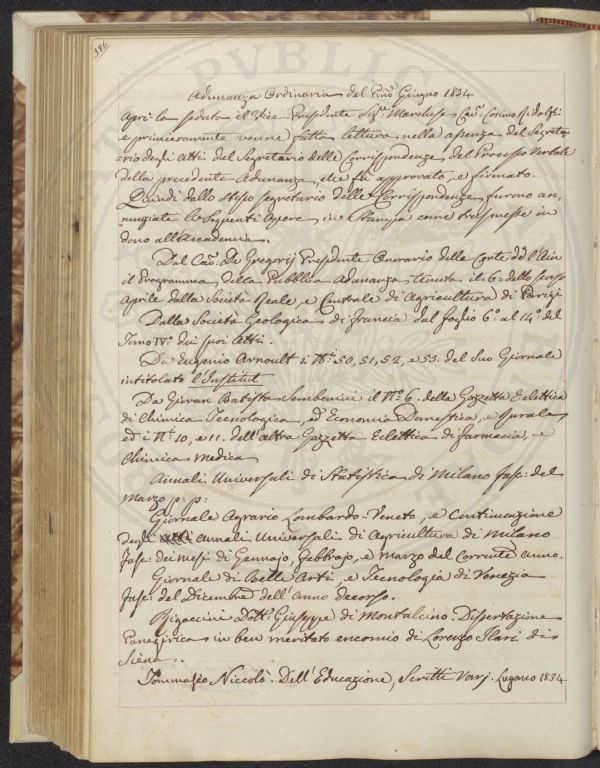 186.
Adunanza Ordinaria del Pmo Giugno 1834
Aprì la seduta il Vice Presidente Sigre Marchese Cav: Cosimo Ridolfi
e primieramente venne fatta lettura, nella assenza del Segreta-
=rio degli Atti dal Segretario delle Corrispondenze del Processo Verbale
della precedente Adunanza, che fu approvato, e firmato.
Quindi dallo stesso segretario delle Corrispondenze furono an-
nunziate le seguenti Opere in Stampa come trasmesse in
dono all'Accademia.
Dal Cav: De Gregorij Presidente Onorario della Corte d'Aix
il Programma della Pubblica Adunanza tenuta il 6 dello scorso
Aprile dalla Società Reale, e Centrale di Agricoltura di Parigi
Dalla Società Geologica di Francia dal foglio 6º al 14º del
Tomo IVº dei suoi Atti.
Da Eugenio Arnoult i Ni 50, 51, 52, e 53. del Suo Giornale
intitolato l'Institut
Da Giovan Batista Sembenini il Nº 6. della Gazzetta Eclettica
di Chimica Tecnologica, ed Economia Domestica, e Rurale
ed i Ni 10, e 11. dell'altra Gazzetta Eclettica di farmacia, e
Chimica Medica
Annali Universali di Statistica di Milano Fasc: del
Marzo p: p:
Giornale Agrario Lombardo-Veneto, e Continuazione
degli Annali Universali di Agricoltura di Milano
Fasc: dei mesi di Gennajo, Febbrajo, e Marzo del Corrente anno.
Giornale di Belle Arti, e Tecnologia di Venezia
Fasc: del Dicembre dell'anno decorso.
Dott: Giuseppe di Montalcino. Dissertazione
Panegirica in ben meritato encomio di Lorenzo Ilari di
Siena.
Tommaséo Niccolò. Dell'Educazione, Scritti Varj. Lugano 1834